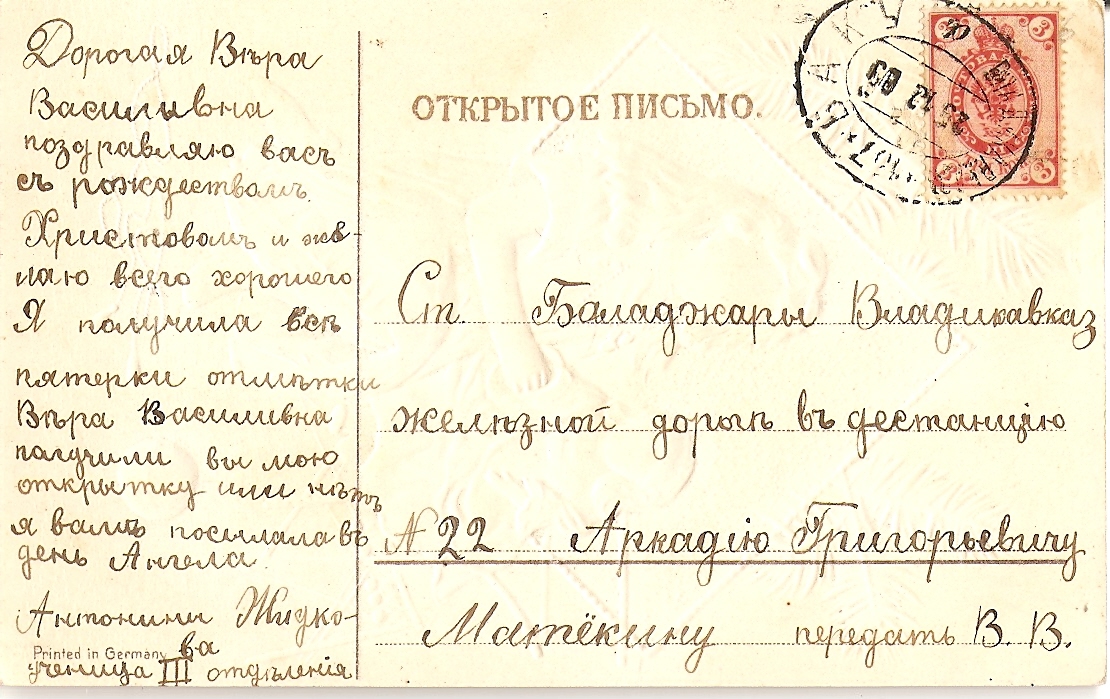 Дорогая Вѣра
Василивна
поздравляю васъ
съ рождествомъ
Христовомъ и жв-
лаю всего хорошего
Я получила всѣ
пятерки отмѣтки
Вѣра Василивна
получили вы мою
открытку или нѣтъ
я вамъ посилала въ
день Ангела.
Антонины Жидко-
ва
Printed in Germany
ученица III отдѣленія
ОТКРЫТОЕ ПИСЬМО.
БАКУ
3
3
3
3
Ст. Баладжары Владикавказ
желѣзной дорогѣ въ дестанцію
№ 22 Аркадію Григорьевичу
Матёкину передать В. В.